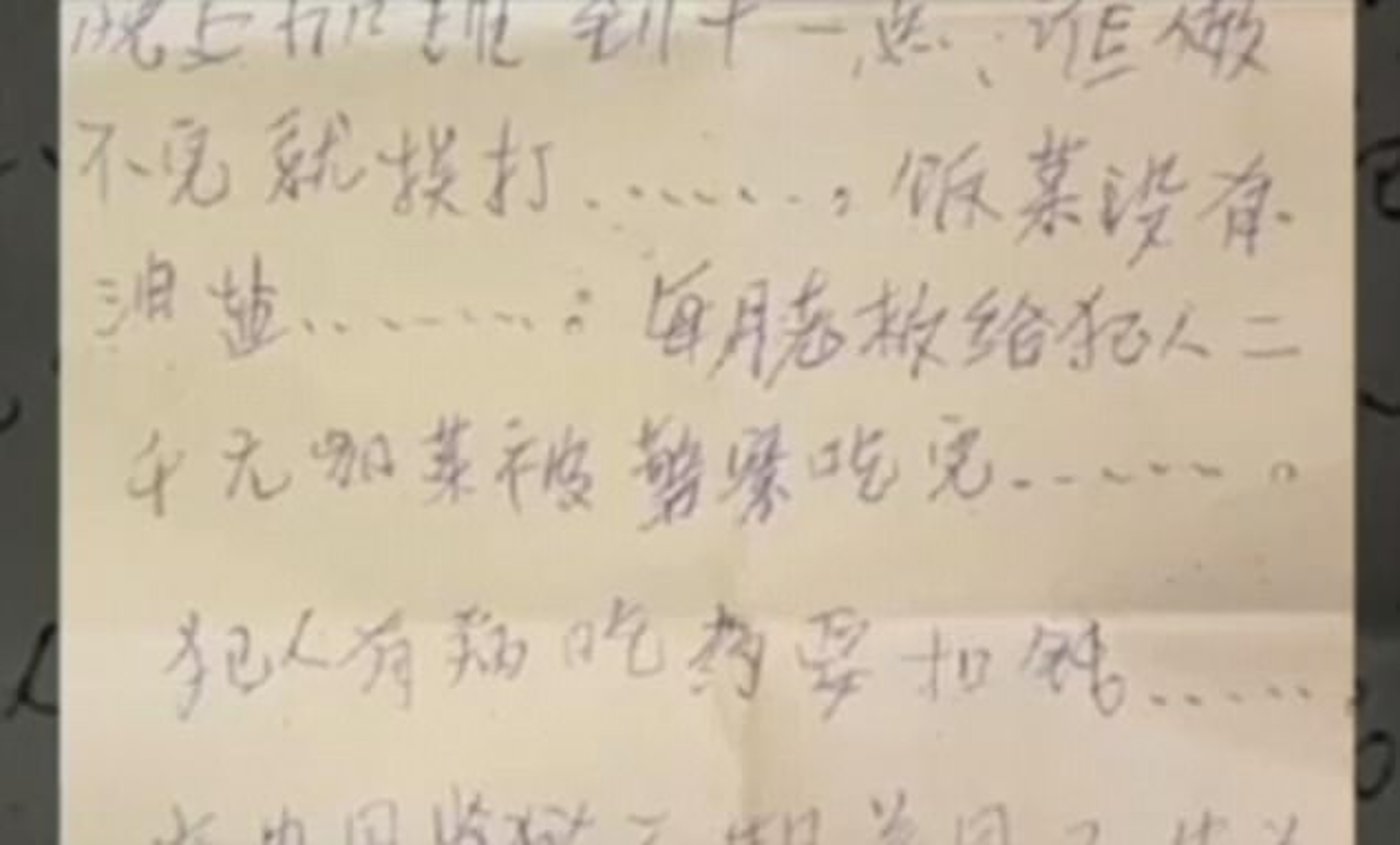 晚上加班到十一点,谁做
不完就挨打.........。饭菜没有
油盐.........。每月老板给犯人二
千元加菜被警察吃完.........。
犯人有病吃药要扣钱.........。